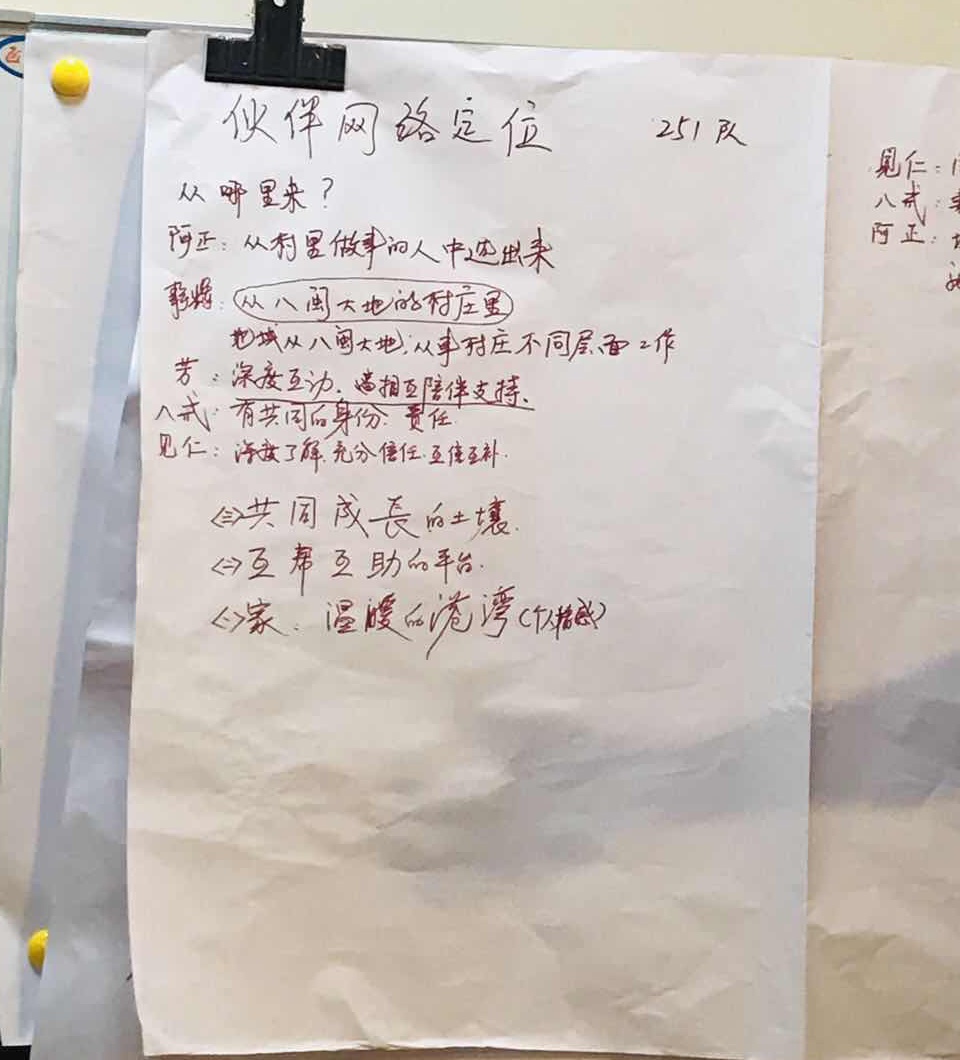 伙伴网络定位 251队
从哪里来?
阿正: 从村里做事的人中选出来
从八闽大地的村庄里
地域从八闽大地; 从事村庄不同层面工作
芳: 深度互动、相互陪伴支持.
八戒: 有共同的身份、责任.
见仁: 深度了解、充分信任、互信互补.
<三>共同成长的土壤.
<二>互帮互助的平台.
<一>家、温暖的港湾(个人情感)
见仁:
八戒:
阿正: